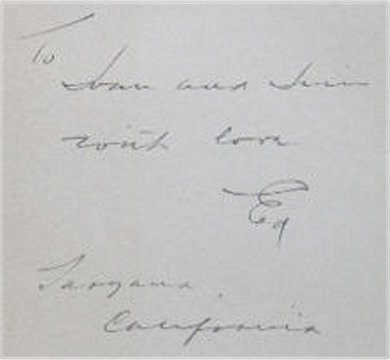 To
Joan and Jim
with love
Ed
Tarzana,
California